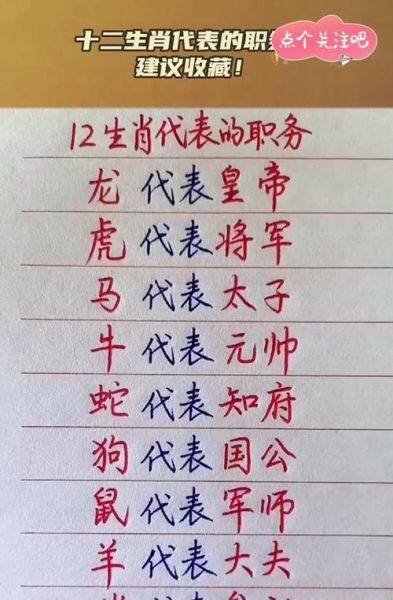 十二生肖代表的职
点个关注吧
建议收藏！
12生肖代表的职务
龙 代表 皇帝
虎 代表 将军
马 代表 太子
牛 代表 元帅
蛇 代表 知府
狗 代表 国公
鼠 代表 军师
羊 代表 大夫